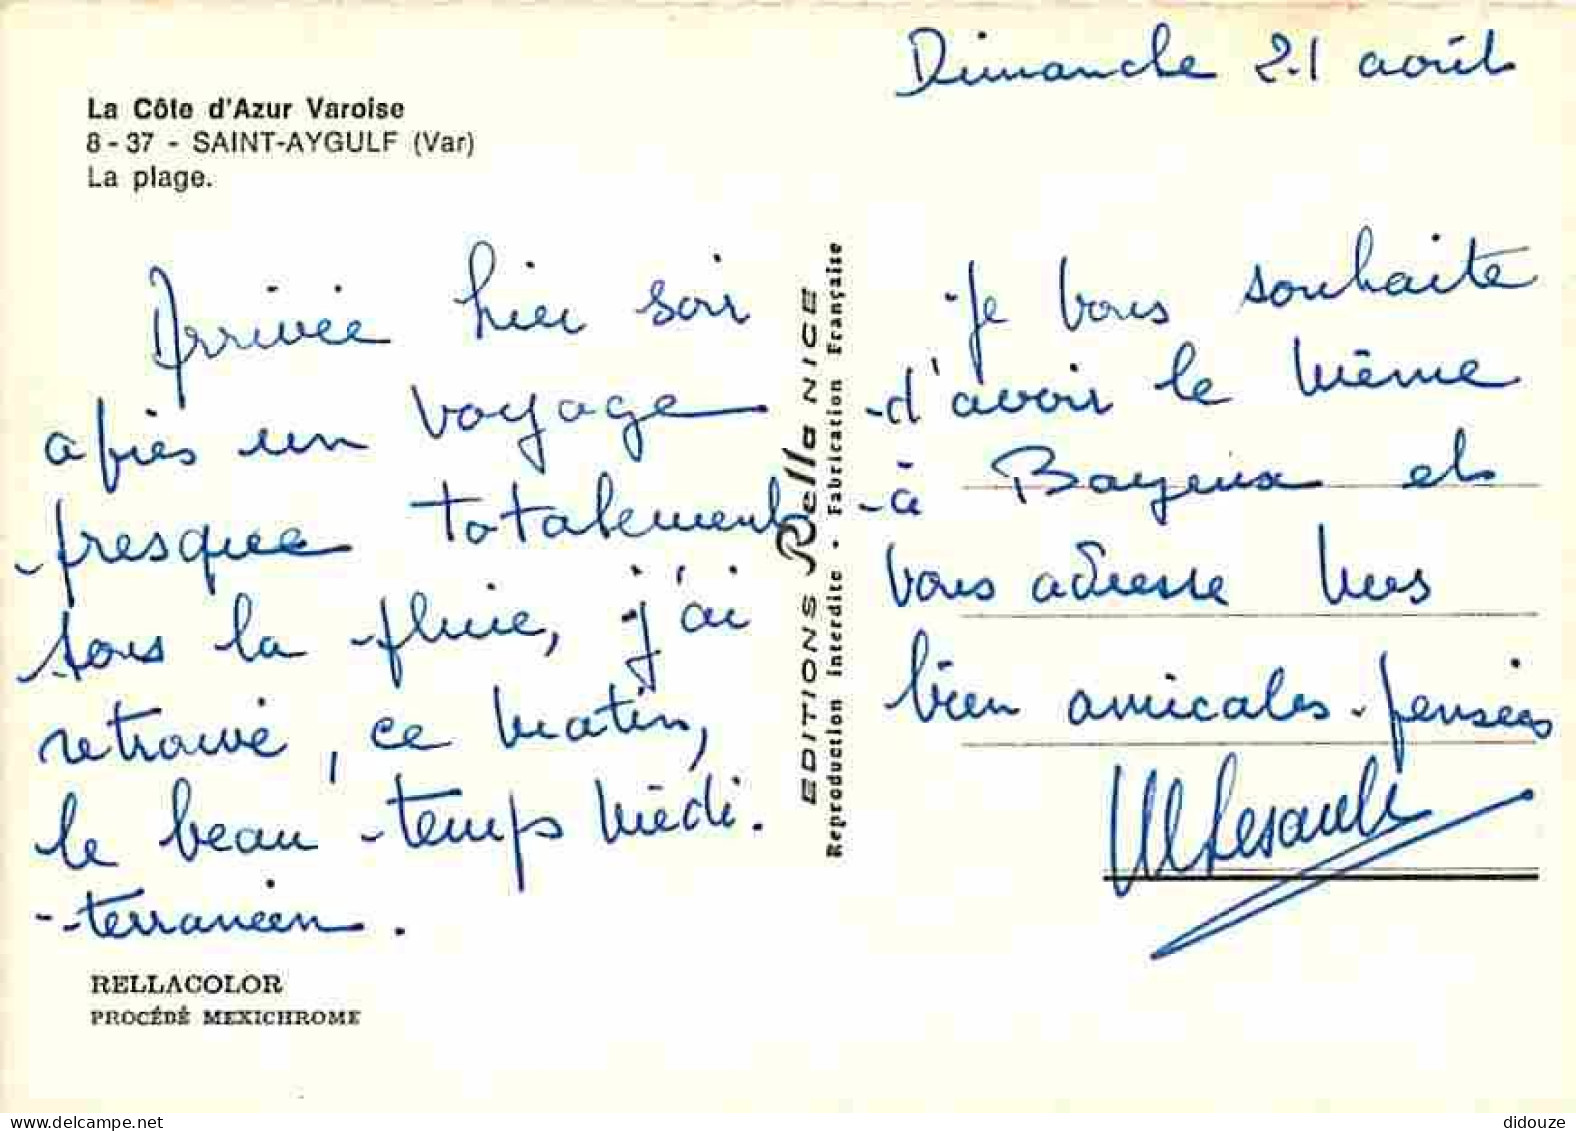 Dimanche 21 août
La Côte d'Azur Varoise
8 - 37 - SAINT-AYGULF (Var)
La plage.
Arrivée hier soir
après un voyage
presque totalement
sous la pluie, j'ai
retrouvé, ce matin,
le beau temps médi.
-terranéen.
RELLACOLOR
PROCÉDÉ MEXICHROME
EDITIONS Rella NICE
Reproduction Interdite • Fabrication Française
Je vous souhaite
d'avoir le même
à Bayeux et
vous adresse mes
bien amicales pensées
didouze
www.delcampe.net